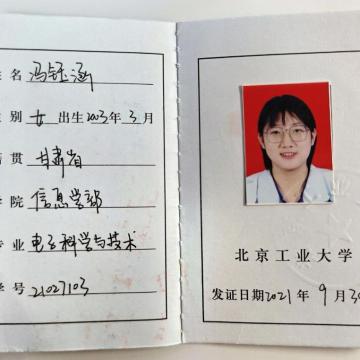 姓名 冯钰涵
性别 女 出生 2003年3月
籍贯 甘肃省
学院 信息学部
专业 电子科学与技术
学号 21027103
北京工业大学
发证日期2021年9月30